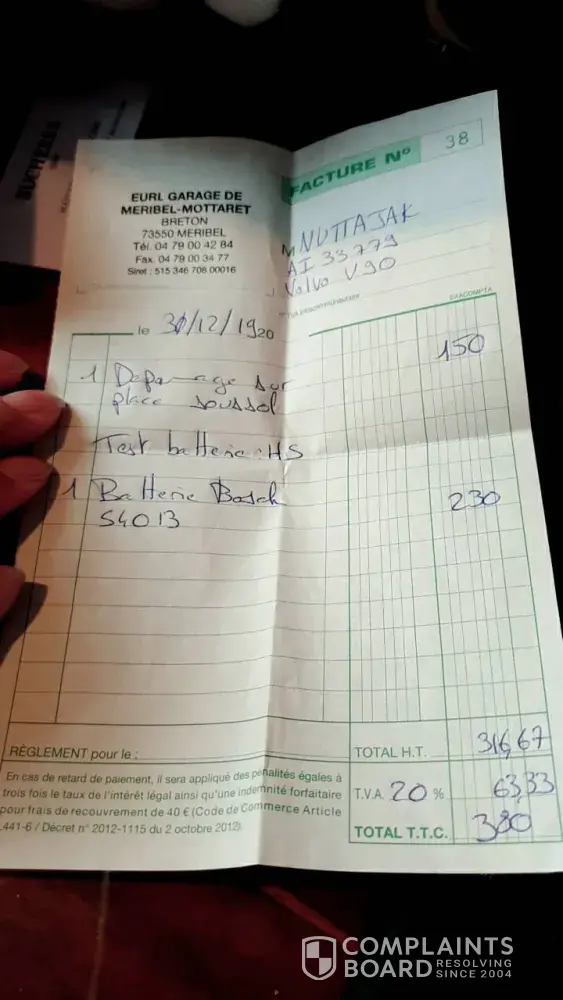 BUCHERES
EURL GARAGE DE
MERIBEL-MOTTARET
BRETON
73550 MERIBEL
Tél. 04 79 00 42 84
Fax. 04 79 00 34 77
Siret : 515 346 708 00016
FACTURE Nº 38
M NUTTAJAK
AI 33779
Volvo V90
EXACOMPTA
le 31/12/1920
1 Depannage sur 150
place soussol
Test batterie : HS
1 Batterie Bosch 230
S4013
RÈGLEMENT pour le :
TOTAL H.T. 316,67
En cas de retard de paiement, il sera appliqué des pénalités égales à
trois fois le taux de l'intérêt légal ainsi qu'une indemnité forfaitaire
pour frais de recouvrement de 40 € (Code de Commerce Article
L441-6 / Décret n° 2012-1115 du 2 octobre 2012).
T.V.A. 20 % 63,33
TOTAL T.T.C. 380
COMPLAINTS
BOARD RESOLVING
SINCE 2004